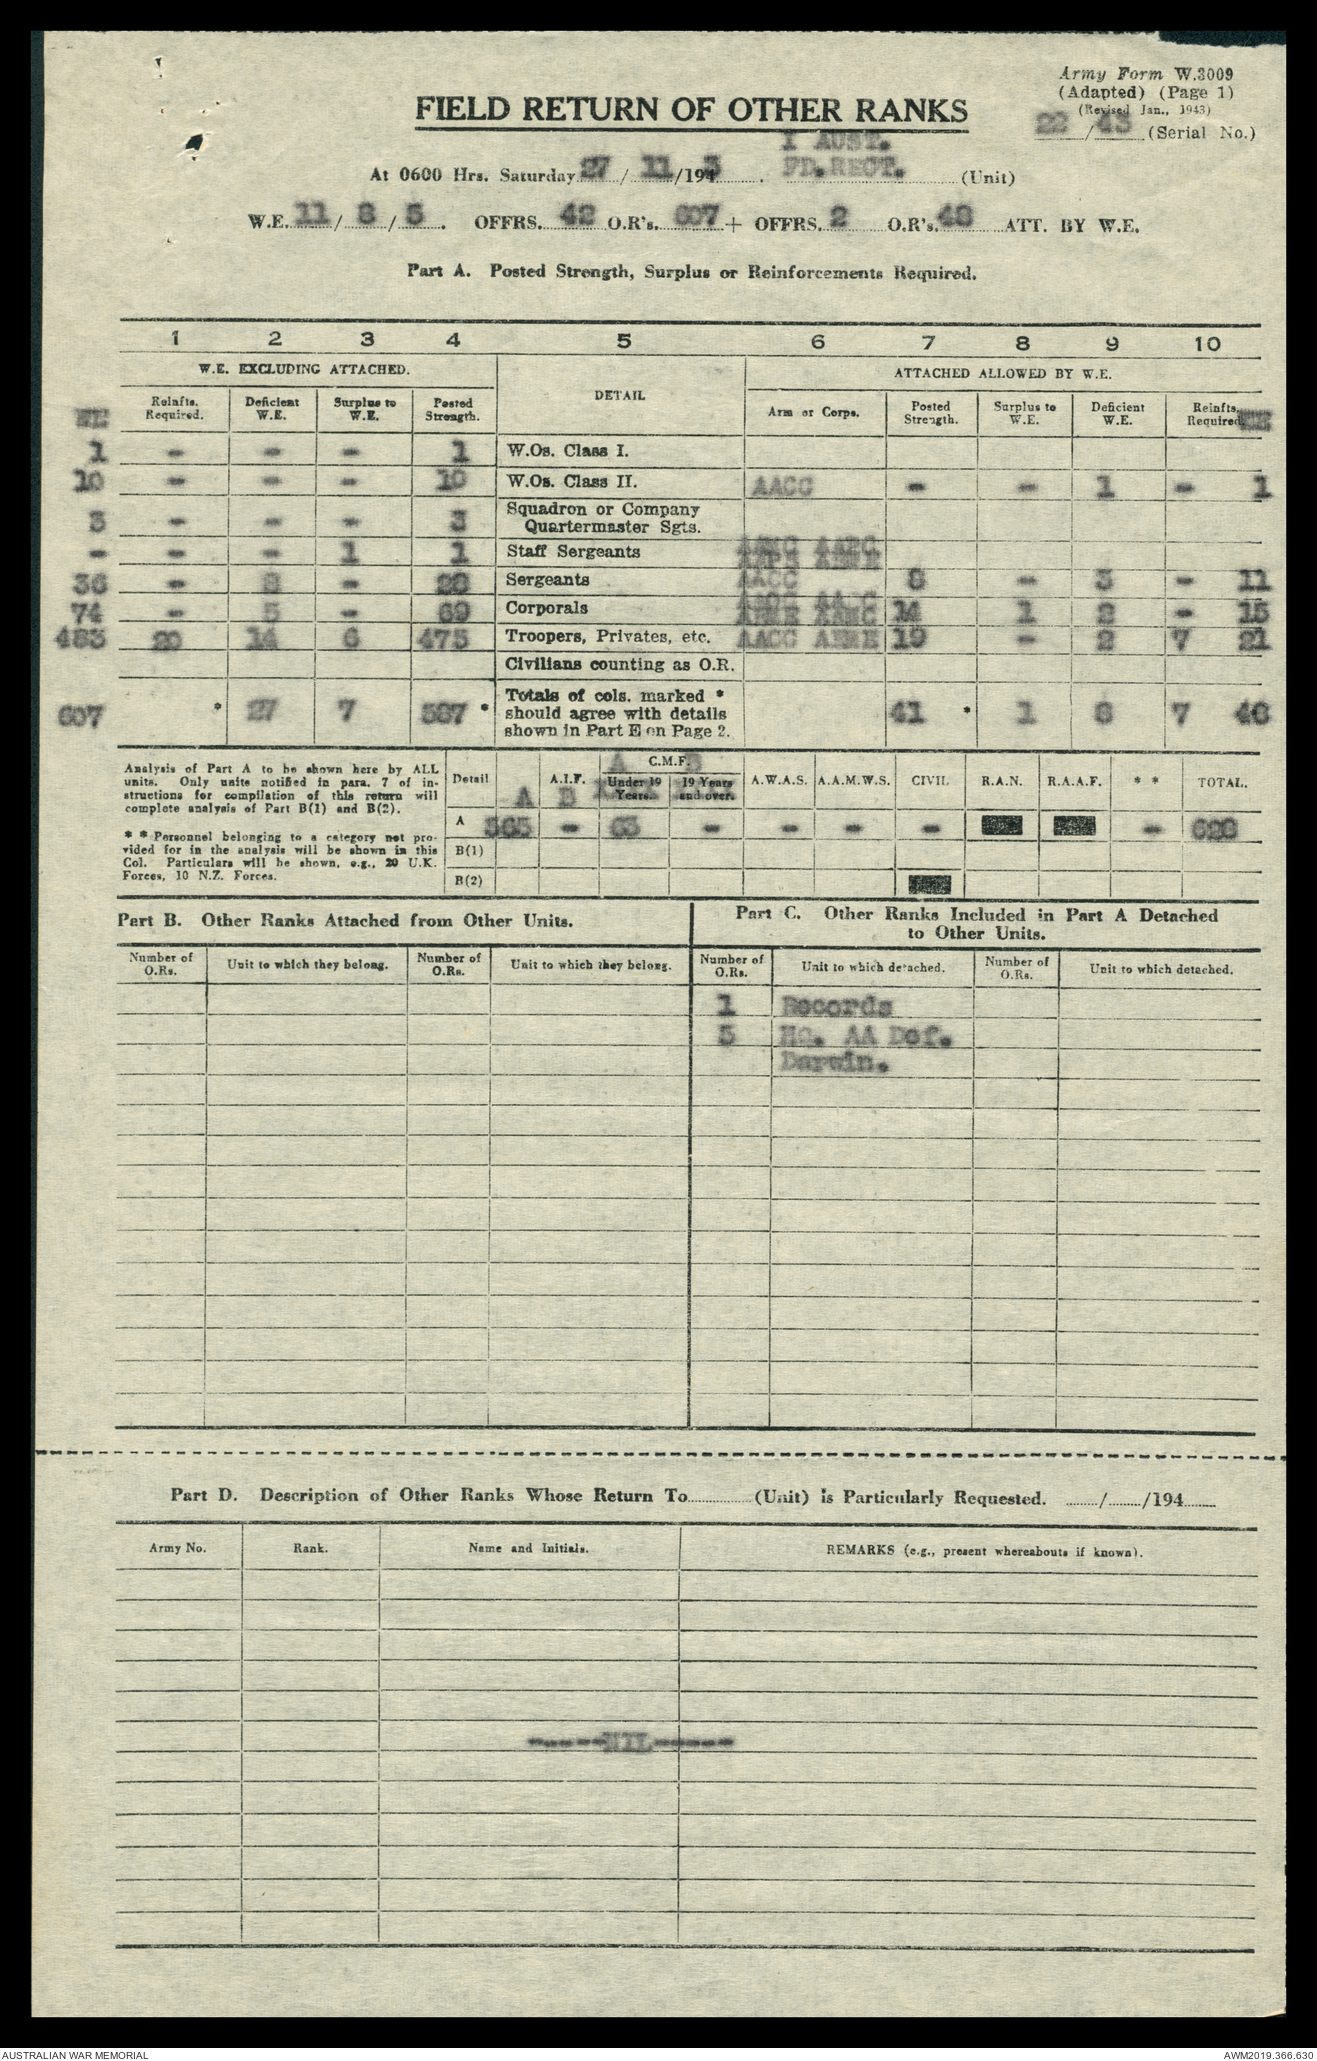 Army Form W.3009
(Adapted) (Page 1)
(Revised Jan., 1943)
22/43 (Serial No.)
FIELD RETURN OF OTHER RANKS
I AUST.
At 0600 Hrs. Saturday 27/11/1943. FD.REGT. (Unit)
W.E. 11/8/5. OFFRS. 42 O.R's. 607 + OFFRS. 2 O.R's. 48 ATT. BY W.E.
Part A. Posted Strength, Surplus or Reinforcements Required.
1 2 3 4 5 6 7 8 9 10
W.E. EXCLUDING ATTACHED. DETAIL ATTACHED ALLOWED BY W.E.
WE Reinfts. Required. Deficient W.E. Surplus to W.E. Posted Strength. Arm or Corps. Posted Strength. Surplus to W.E. Deficient W.E. Reinfts. Required. WE
1 - - - 1 W.Os. Class I.
10 - - - 10 W.Os. Class II. AACC - - 1 - 1
3 - - - 3 Squadron or Company Quartermaster Sgts.
- - - 1 1 Staff Sergeants
36 - 8 - 28 Sergeants AACC 8 - 3 - 11
74 - 5 - 69 Corporals 14 1 2 - 15
483 20 14 6 475 Troopers, Privates, etc. AACC AEME 19 - 2 7 21
Civilians counting as O.R.
607 * 27 7 587 * Totals of cols. marked * should agree with details shown in Part E on Page 2. 41 * 1 8 7 48
Analysis of Part A to be shown here by ALL
units. Only units notified in para. 7 of in-
structions for compilation of this return will
complete analysis of Part B(1) and B(2).
* * Personnel belonging to a category not pro-
vided for in the analysis will be shown in this
Col. Particulars will be shown, e.g., 20 U.K.
Forces, 10 N.Z. Forces.
Detail A.I.F. A B C.M.F. A B Under 19 Years. 19 Years and over. A.W.A.S. A.A.M.W.S. CIVIL R.A.N. R.A.A.F. * * TOTAL.
A 565 - 63 - - - - - 628
B(1)
B(2)
Part B. Other Ranks Attached from Other Units.
Part C. Other Ranks Included in Part A Detached
to Other Units.
Number of O.Rs. Unit to which they belong. Number of O.Rs. Unit to which they belong. Number of O.Rs. Unit to which detached. Number of O.Rs. Unit to which detached.
1 Records
5 HQ. AA Def.
Darwin.
Part D. Description of Other Ranks Whose Return To (Unit) is Particularly Requested. / /194
Army No. Rank. Name and Initials. REMARKS (e.g., present whereabouts if known).
-----NIL-----
AUSTRALIAN WAR MEMORIAL
AWM2019.366.630